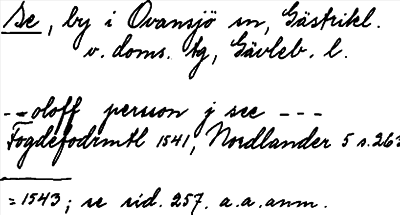 Se, by i Ovansjö sn, Gästrikl.
v. doms. tg, Gävleb. l.
- - oloff persson j see - - -
Fogdefodrmtl 1541, Nordlander 5 s. 263
= 1543; se sid. 257. a.a. anm.